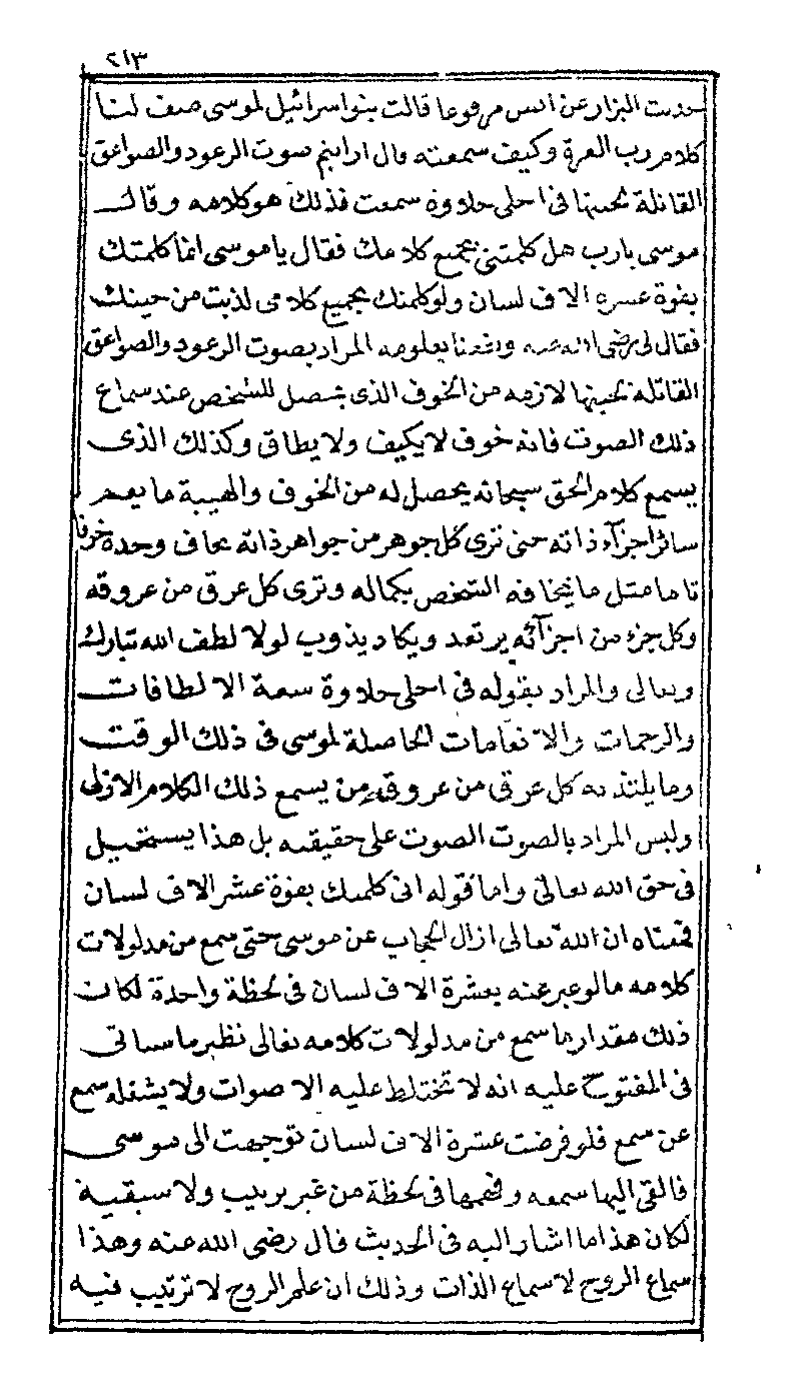 ٢١٣
حديث البزار عن انس مرفوعا قالت بنو اسرائيل لموسى صف لنا
كلام رب العزة وكيف سمعته قال ارايتم صوت الرعود والصواعق
القاتلة لحينها في احلى حلاوة سمعت فذلك هو كلامه وقال
موسى يارب هل كلمتني بجميع كلامك فقال ياموسى انما كلمتك
بقوة عشرة الاف لسان ولو كلمتك بجميع كلامي لذبت من حينك
فقال لي رضي الله عنه ونفعنا بعلومه المراد بصوت الرعود والصواعق
القاتلة لحينها لازمه من الخوف الذى يحصل للشخص عند سماع
ذلك الصوت فانه خوف لا يكيف ولا يطاق وكذلك الذى
يسمع كلام الحق سبحانه يحصل له من الخوف والهيبة ما يعم
سائر اجزآء ذاته حتى ترى كل جوهر من جواهر ذاته يخاف وحده خوفا
تاما مثل ما يخافه الشخص بكماله وترى كل عرق من عروقه
وكل جزء من اجزآئه يرتعد ويكاد يذوب لولا لطف الله تبارك
وتعالى والمراد بقوله في احلى حلاوة سمعة الالطافات
والرحمات والانعامات الحاصلة لموسى في ذلك الوقت
وما يلتذ به كل عرق من عروقه من يسمع ذلك الكلام الازلي
وليس المراد بالصوت الصوت على حقيقته بل هذا يستحيل
في حق الله تعالى واما قوله اني كلمتك بقوة عشر الاف لسان
فمعناه ان الله تعالى ازال الحجاب عن موسى حتى سمع من مدلولات
كلامه ما لو عبر عنه بعشرة الاف لسان في لحظة واحدة لكان
ذلك مقدار ما سمع من مدلولات كلامه تعالى نظير ما سياتي
في المفتوح عليه انه لا تختلط عليه الاصوات ولا يشغله سمع
عن سمع فلو فرضت عشرة الاف لسان توجهت الى موسى
فالقى اليها سمعه وفهمها في لحظة من غير ترتيب ولا سبقية
لكان هذا ما اشار اليه في الحديث قال رضى الله عنه وهذا
سماع الروح لا سماع الذات وذلك ان علم الروح لا ترتيب فيه